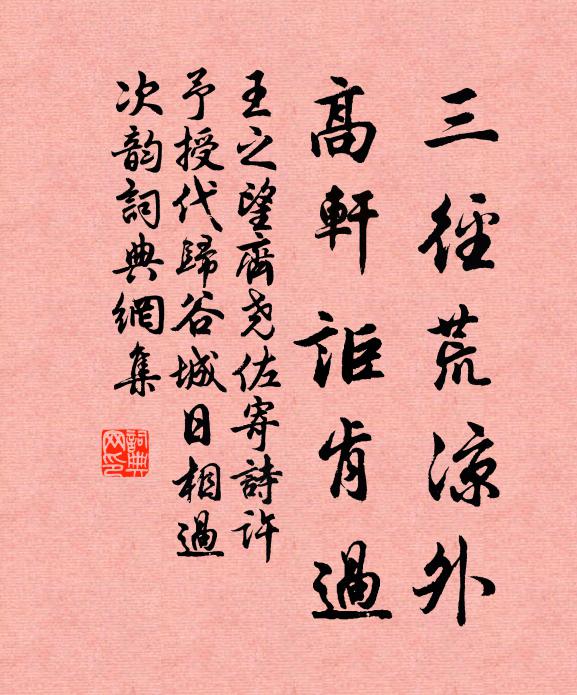 三徑荒涼外
高軒詎肯過
王之望齊堯佐寄詩許
予授代歸谷城日相過
次韵詞典網集
詞典
网印